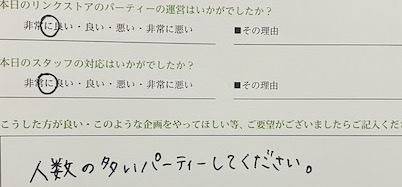 本日のリンクストアのパーティーの運営はいかがでしたか？
非常に良い・良い・悪い・非常に悪い ■その理由
本日のスタッフの対応はいかがでしたか？
非常に良い・良い・悪い・非常に悪い ■その理由
こうした方が良い・このような企画をやってほしい等、ご要望がございましたらご記入くださ
人数の多いパーティーしてください。